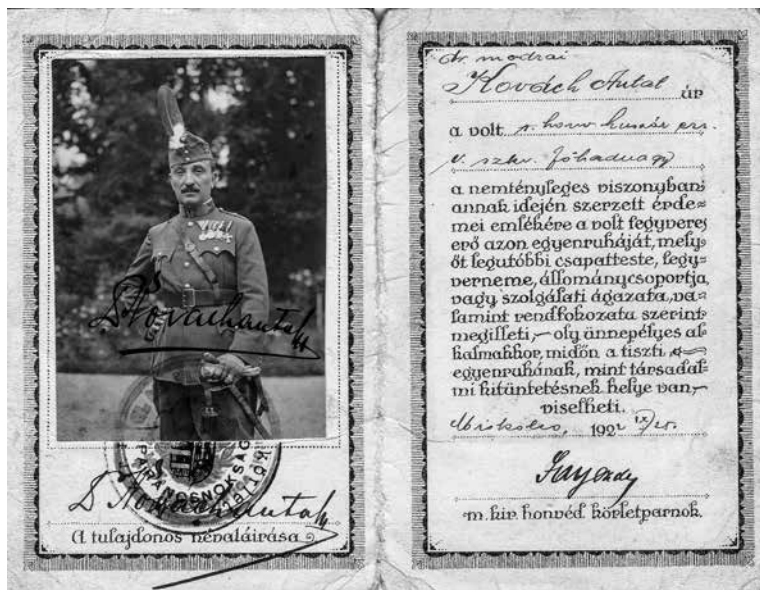 Dr Kovách Antal
Dr Kovách Antal
A tulajdonos névaláirása
dr. modrai
Kovách Antal úr
a volt honv. huszár ezr.
főhadnagy
a nemtényleges viszonyban
annak idején szerzett érde=
mei emlékére a volt fegyveres
erő azon egyenruháját, mely
őt legutóbbi csapatteste, fegy=
verneme, állománycsoportja,
vagy szolgálati ágazata, va=
lamint rendfokozata szerint
megilleti, – oly ünnepélyes al=
kalmakkor, midőn a tiszti
egyenruhának, mint társadal=
mi kitüntetésnek helye van, –
viselheti.
Miskolcz, 192
m. kir. honvéd körletparnok.